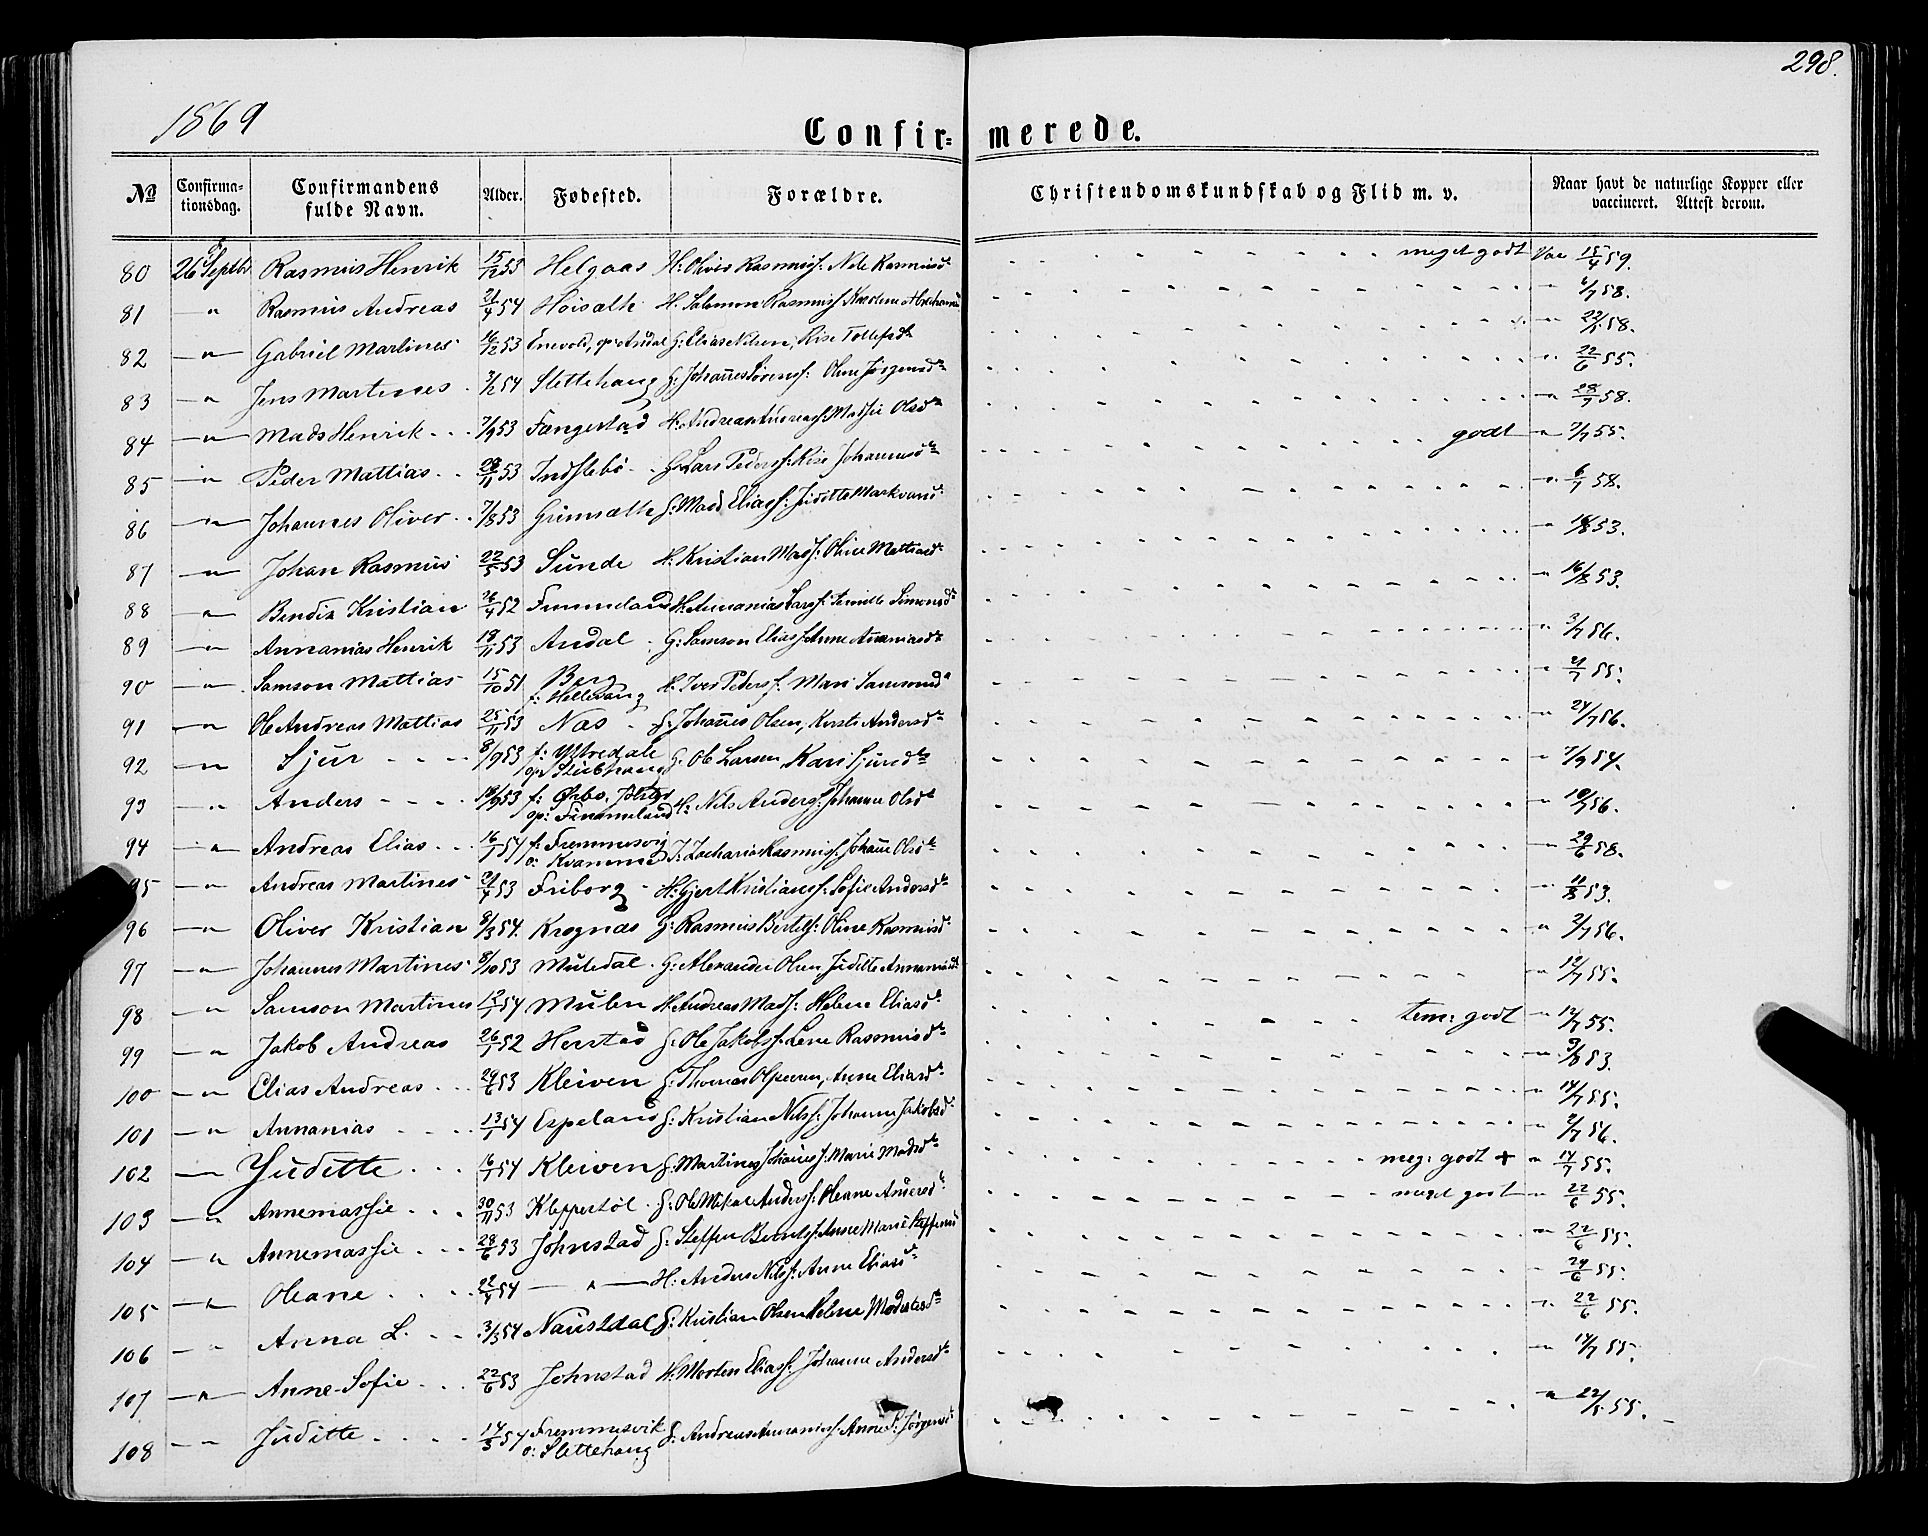 298.
1869
Confir= merede.
No Confirma-tionsdag. Confirmandens fulde Navn. Alder. Fødested. Forældre. Christendomskundskab og Flid m. v. Naar havt de naturlige Kopper eller vaccineret. Attest derom.
80 26 Septbr Rasmus Henrik 15/12 53 Helgaas H: Oliver Rasmuss: Nele Rasmusd. meget godt Vac 15/4 59.
81 — " Rasmus Andreas 21/4 54 Høisæth H. Salomon Rasmuss — " 58.
82 — " — Gabriel Martines 16/12 53 G: Elias Nilsen, Lise Tollefsdt — " 22/ 58.
83 — " Jens Martines 3/2 54 Slettehaug G: Johañes Sørenss: Oline Jørgensdt — " 22/6 55.
84 — " — Mads Henrik 7/9 53 Fængestad H: Andreas Andreass: Olsdt — " 28/7 58.
85 — " Peder Mattias 28/11 53 Indslebø G: Lars Peders: Lise Johannesdt godt — " 7/7 55.
86 — " — Johannes Oliver 7/8 53 Grimsæth G: Mads Eliass: Juditte Markusd. — " 6/7 58.
87 — " — Johan Rasmus 22/5 53 Sunde H: Kristian Madss: Oline Mattiasd — " 53.
88 — " — Bendix Kristian 4 52 Simonsdt — " 16/8 53.
89 — " Annanias Henrik 18/11 53 Andal G: Samson Eliass Anne Ananiasdt — " 3/7 56.
90 — " — Samson Mattias 15/10 51 Berg f: Hellevang H: Iver Peders f. Mari Samsond — " 21/7 55.
91 — " Ole Andreas Mattias 25/11 53 Nas G: Johañes Olsen, Kirsti Andersdt — " 24/7 56.
92 — " — Sjur 8/9 53 f: Ytredale G: Ole Larsen, Kari Sjursdt — " 7/9 54.
93 — " Anders 18/9 53 f: Ørbo, Jølster op: Fimmeland H: Nils Anders: Johanne Olsdt — " 10/7 56.
94 — " — Andreas Elias 16/1 54 f: Fremmesvig o: Kvamme J: Zacharias Rasmuss: Johañe Olsdt — " 29/6 58.
95 — " Andreas Martines 21/7 53 Friborg H: Gjert Kristianss: Sofie Andersdt — " 11/8 53.
96 — " — Oliver Kristian 8/3 54. Krognæs G: Rasmus Bertels: Oline Rasmusd. — " 2/7 56.
97 — " Johannes Martines 8/10 53 Muledal G: Alexander Olsen Juditte — " 12/7 55.
98 — " Samson Martines 12/1 54 Mulen H. Andreas Mads: Helene Eliasdt tem: godt — " 14/7 55.
99 — " Jakob Andreas 26/1 52 Herstad G: Ole Jakobs: Lene Rasmusdt — " 9/8 53.
100 — " Elias Andreas 29/6 53 Kleiven G: Thomas Anne Eliasdt — " 14/7 55.
101 — " Annanias 13/1 54 Espeland G: Kristian Nilss: Johanne Jakobsdt — " 2/7 56.
102 — " Juditte 16/1 54 Kleiven G: Martines Johañes f. Marie Madsdt meg: godt + " 14/7 55.
103 — " Annemarthie 30/11 53 Kleppestøl G: Ole Mikal Anders: Oleane Andersdt meget godt — " 22/6 55.
104 — " Annemarthie 28/6 53 Johnstad G: Steffen Anne Marie — " 22/6 55.
105 — " Oleane 22/1 54 — " — H: Anders Nilss: Anne Eliasdt — 29/6 55.
106 — " Anna L. 3/3 54 Naustdal G: Kristian Olsen Helene — " 22/6 55.
107 — " — Anne Sofie 22/6 53 Johnstad H: Morten Eliass: Johanne Andersdt — " 14/7 55.
108 — " Juditte 17/3 54 Fremmesvik o: Slettehaug G: Andreas Ananiass: Anne S. Jørgensd. — " 22/ 55.